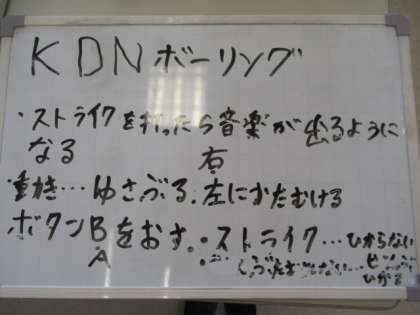 KDNボーリング
・ストライクを打ったら音楽が出るように
なる
動き…ゆさぶる.左にかたむける
右
ボタンBをおす。:ストライク…ひからない
A
ひかる